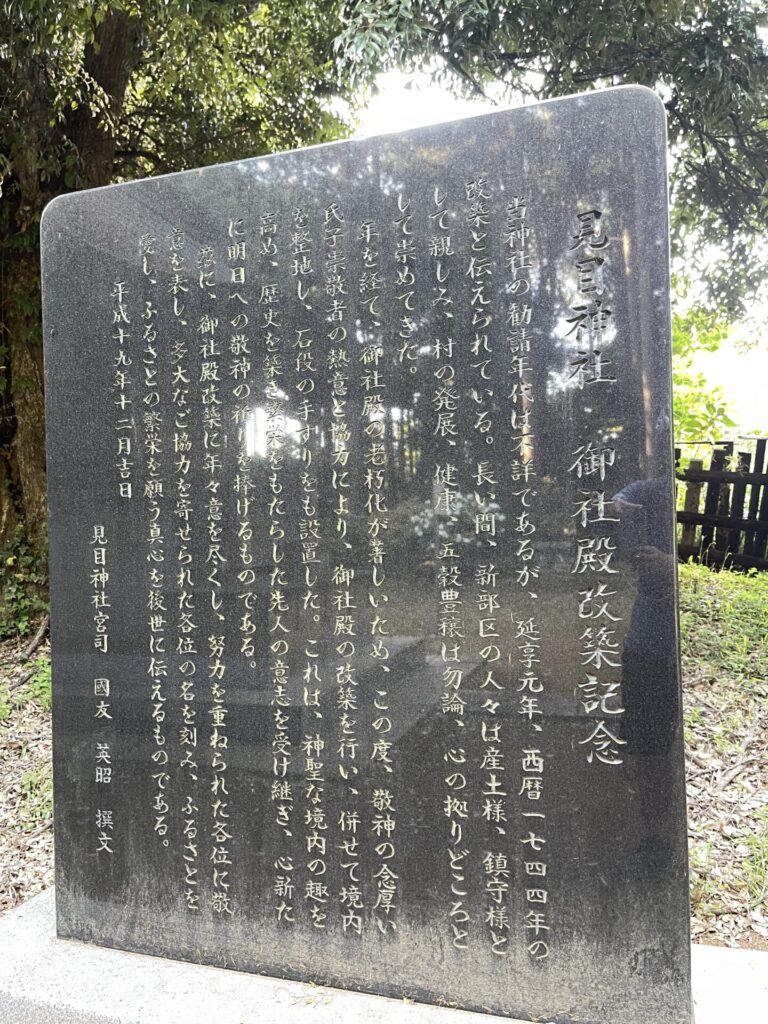 見目神社 御社殿改築記念
当神社の勧請年代は不詳であるが、延享元年、西暦一七四四年の
改築と伝えられている。長い間、新部区の人々は産土様、鎮守様と
して親しみ、村の発展、健康、五穀豊穣は勿論、心の拠りどころと
して崇めてきた。
年を経て、御社殿の老朽化が著しいため、この度、敬神の念厚い
氏子崇敬者の熱意と協力により、御社殿の改築を行い、併せて境内
を整地し、石段の手すりをも設置した。これは、神聖な境内の趣を
高め、歴史を築き繁栄をもたらした先人の意志を受け継ぎ、心新た
に明日への敬神の祈りを捧げるものである。
茲に、御社殿改築に年々意を尽くし、努力を重ねられた各位に敬
意を表し、多大なご協力を寄せられた各位の名を刻み、ふるさとを
愛し、ふるさとの繁栄を願う真心を後世に伝えるものである。
平成十九年十二月吉日
見目神社宮司 國友 英昭 撰文